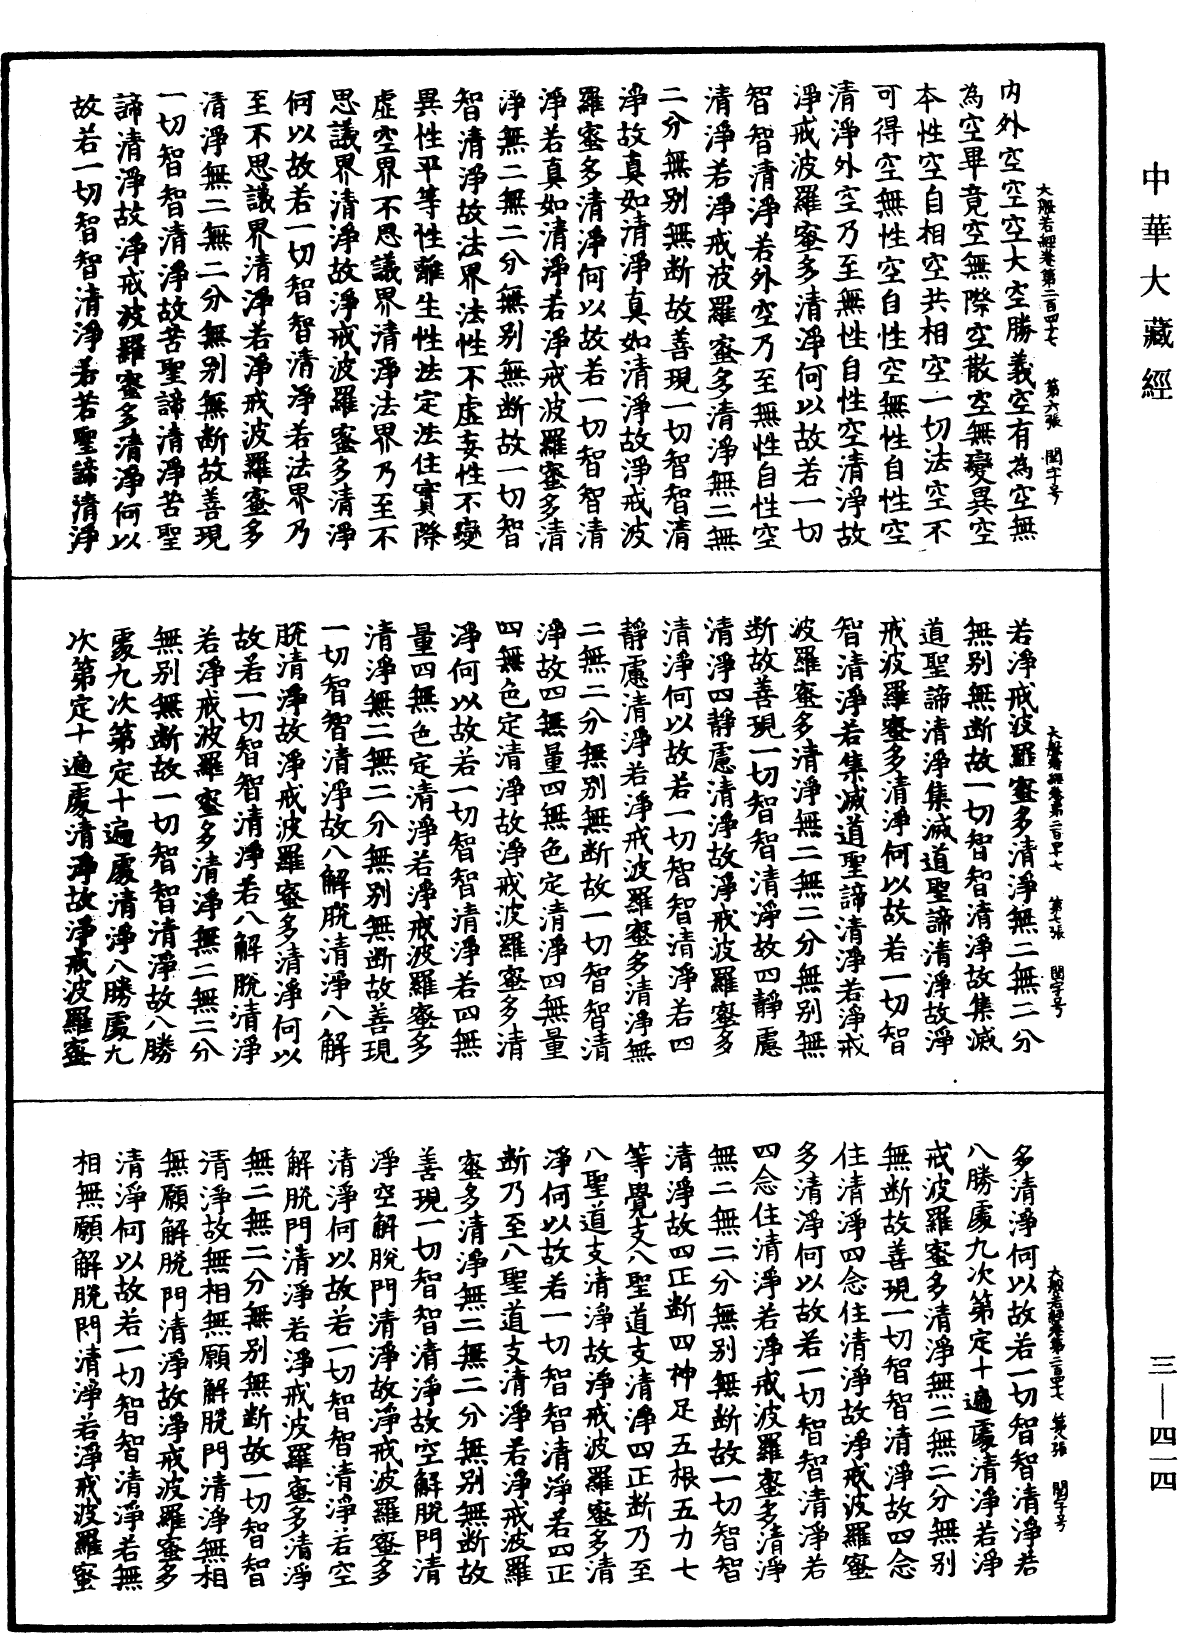 中華大藏經
內外空空空大空勝義空有為空無
為空畢竟空無際空散空無變異空
本性空自相空共相空一切法空不
可得空無性空自性空無性自性空
清淨外空乃至無性自性空清淨故
淨戒波羅蜜多清淨何以故若一切
智智清淨若外空乃至無性自性空
清淨若淨戒波羅蜜多清淨無二無
二分無別無斷故善現一切智智清
淨故真如清淨真如清淨故淨戒波
羅蜜多清淨何以故若一切智智清
淨若真如清淨若淨戒波羅蜜多清
淨無二無二分無別無斷故一切智
智清淨故法界法性不虛妄性不變
異性平等性離生性法定法住實際
虛空界不思議界清淨法界乃至不
思議界清淨故淨戒波羅蜜多清淨
何以故若一切智智清淨若法界乃
至不思議界清淨若淨戒波羅蜜多
清淨無二無二分無別無斷故善現
一切智智清淨故苦聖諦清淨苦聖
諦清淨故淨戒波羅蜜多清淨何以
故若一切智智清淨若苦聖諦清淨
大般若經卷第二百四十七 第六張 閏字号
若淨戒波羅蜜多清淨無二無二分
無別無斷故一切智智清淨故集滅
道聖諦清淨集滅道聖諦清淨故淨
戒波羅蜜多清淨何以故若一切智
智清淨若集滅道聖諦清淨若淨戒
波羅蜜多清淨無二無二分無別無
斷故善現一切智智清淨故四靜慮
清淨四靜慮清淨故淨戒波羅蜜多
清淨何以故若一切智智清淨若四
靜慮清淨若淨戒波羅蜜多清淨無
二無二分無別無斷故一切智智清
淨故四無量四無色定清淨四無量
四無色定清淨故淨戒波羅蜜多清
淨何以故若一切智智清淨若四無
量四無色定清淨若淨戒波羅蜜多
清淨無二無二分無別無斷故善現
一切智智清淨故八解脫清淨八解
脫清淨故淨戒波羅蜜多清淨何以
故若一切智智清淨若八解脫清淨
若淨戒波羅蜜多清淨無二無二分
無別無斷故一切智智清淨故八勝
處九次第定十遍處清淨八勝處九
次第定十遍處清淨故淨戒波羅蜜
大般若經卷第二百四十七 第七張 閏字号
多清淨何以故若一切智智清淨若
八勝處九次第定十遍處清淨若淨
戒波羅蜜多清淨無二無二分無別
無斷故善現一切智智清淨故四念
住清淨四念住清淨故淨戒波羅蜜
多清淨何以故若一切智智清淨若
四念住清淨若淨戒波羅蜜多清淨
無二無二分無別無斷故一切智智
清淨故四正斷四神足五根五力七
等覺支八聖道支清淨四正斷乃至
八聖道支清淨故淨戒波羅蜜多清
淨何以故若一切智智清淨若四正
斷乃至八聖道支清淨若淨戒波羅
蜜多清淨無二無二分無別無斷故
善現一切智智清淨故空解脫門清
淨空解脫門清淨故淨戒波羅蜜多
清淨何以故若一切智智清淨若空
解脫門清淨若淨戒波羅蜜多清淨
無二無二分無別無斷故一切智智
清淨故無相無願解脫門清淨無相
無願解脫門清淨故淨戒波羅蜜多
清淨何以故若一切智智清淨若無
相無願解脫門清淨若淨戒波羅蜜
大般若經卷第二百四十七 第八張 閏字号
三—四一四